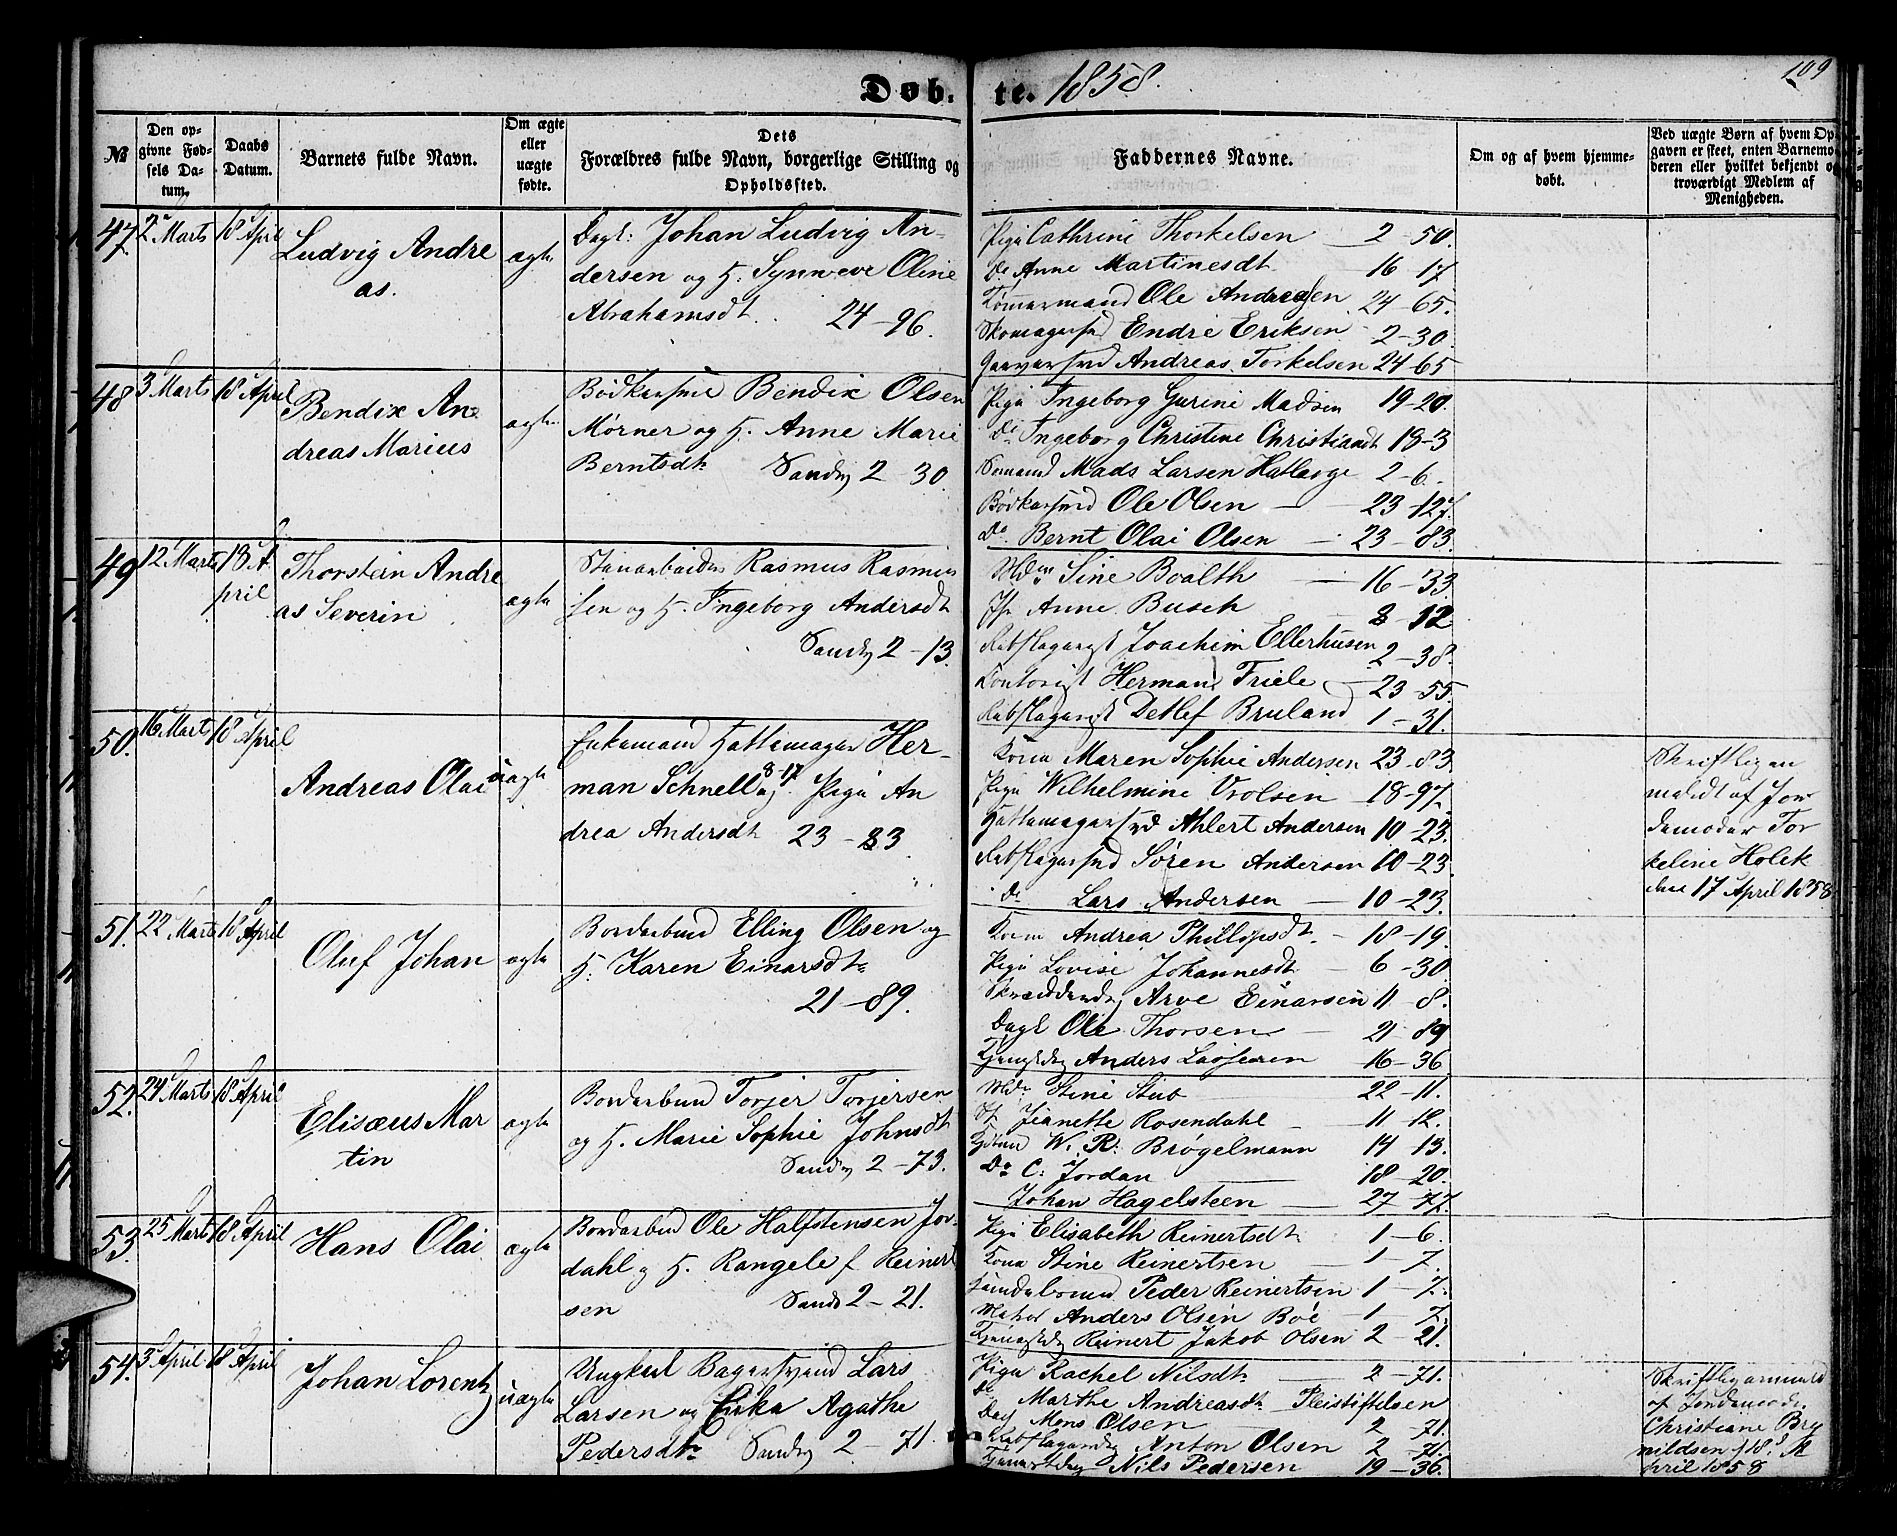 Døb-
te. 1858.
109
№
Den op-
givne Fød-
sels Da-
tum.
Daabs
Datum.
Barnets fulde Navn.
Om ægte
eller
uægte
fødte.
Dets
Forældres fulde Navn, borgerlige Stilling og
Opholdssted.
Faddernes Navne.
Om og af hvem hjemme-
døbt.
Ved uægte Børn af hvem Op-
gaven er skeet, enten Barnemo-
deren eller hvilket bekjendt og
troværdigt Medlem af
Menigheden.
47. 2 Marts 18 April
Ludvig Andre
as.
ægte
Dagk: Johan Ludvig An-
dersen og H. Synneve Oline
Abrahamsdt. 24-96.
Pige Cathrine Thorkelsen 2-50.
Do Anne Martinesdt. 16-17
Tømmermand Ole Andreasen 24-65.
Skomagersvd Endre Eriksen 2-30.
Garversvd Andreas Torkelsen 24-65
48 3 Marts 18 April
Bendix An-
dreas Marius
ægte
Bødkersvd Bendix Olsen
Mørner og H. Anne Marie
Berntsdt. Sandv 2-30.
Pige Ingeborg Gurine Madsen 19-20.
Do Ingeborg Christine Christiandt 18-3
Sømand Mads Larsen Hatlevge 2-6.
Bødkersvd Ole Olsen 23-127.
Do Bernt Olai Olsen 23-83.
49 12 Marts 18 A
pril
Thorstein Andre
as Severin
ægte
Stenarbeider Rasmus Rasmus
sen og H. Ingeborg Andersdt.
Sandv 2-13.
Mdm Sine Boalth 16-33
Jfr Anne Busch 8-12
Rebslagergst Joachim Ellerhusen 2-38.
Kontorist Herman Friele 23-55
Rebslagergst Detlef Bruland 1-31.
50. 16 Marts 18 April
Andreas Olai
uægte
Enkemand Hattemager Her-
man Schnell 8-17 og Pige An
drea Andersdt. 23-83
Kone Maren Sophie Andersen 23-83
Pige Wilhelmine Vrolsen 18-97.
Hattemagersvd Ahlert Andersen 10-23.
Rebslagersvd Søren Andersen 10-23.
Do Lars Andersen 10-23.
Skriftlig an
meldt af Jor
demoder Tor
keline Holck
den 17 April 1858
51. 22 Marts 18 April
Oluf Johan
ægte
Bordarbmd Elling Olsen og
H. Karen Einarsdt.
21-89.
Kone Andrea Phillipsdt. 18-19.
Pige Lovise Johannesdt. 6-30.
Skræddersv Arve Einarsen 11-8.
Dagk Ole Thorsen 21-89
Anders Lassesen 16-36
52. 24 Marts 18 April
Elisæus Mar
tin
ægte
Bordarbmd Torjer Torjersen
og H. Marie Sophie Johnsdt
Sandv 2-73.
Mdm Stine Stub 22-11.
Jf Jeanette Rosendahl 11-12.
W. R. Brøgelmann 14-13.
Do C: Jordan 18-20.
Johan Hagelsteen 27-77.
53. 25 Marts 18 April
Hans Olai
ægte
Bordarbmd Ole Halfstensen Jor-
dahl og H. Rangele f Reinert
sen Sandv 2-21.
Pige Elisabeth Reinertsdt. 1-6.
Kone Stine Reinertsen 1-7.
Peder Reinertsen 1-7.
Anders Olsen Bøe 1-7.
Reinert Jakob Olsen 2-21.
54. 3 April 18 April
Johan Lorentz
uægte
Ungkarl Bagersvend Lars
Larsen og Enke Agathe
Pedersdt. Sandv 2-71.
Pige Rachel Nilsdt. 2-71.
Do Marthe Andreasdt. Pleistiftelsen
Dag Mons Olsen 2-71.
Rebslagersv Anton Olsen 2-71.
Nils Pedersen 19-36.
Skriftlig anmeld
af Jordemoder
Christiane Bry
nildsen 18 A
pril 1858